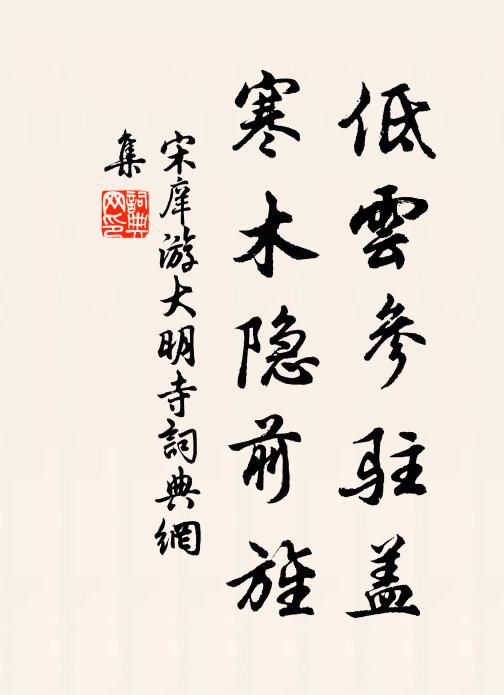 低雲參駐蓋
寒木隐前旌
宋庠游大明寺詞典網
集
詞典
网印